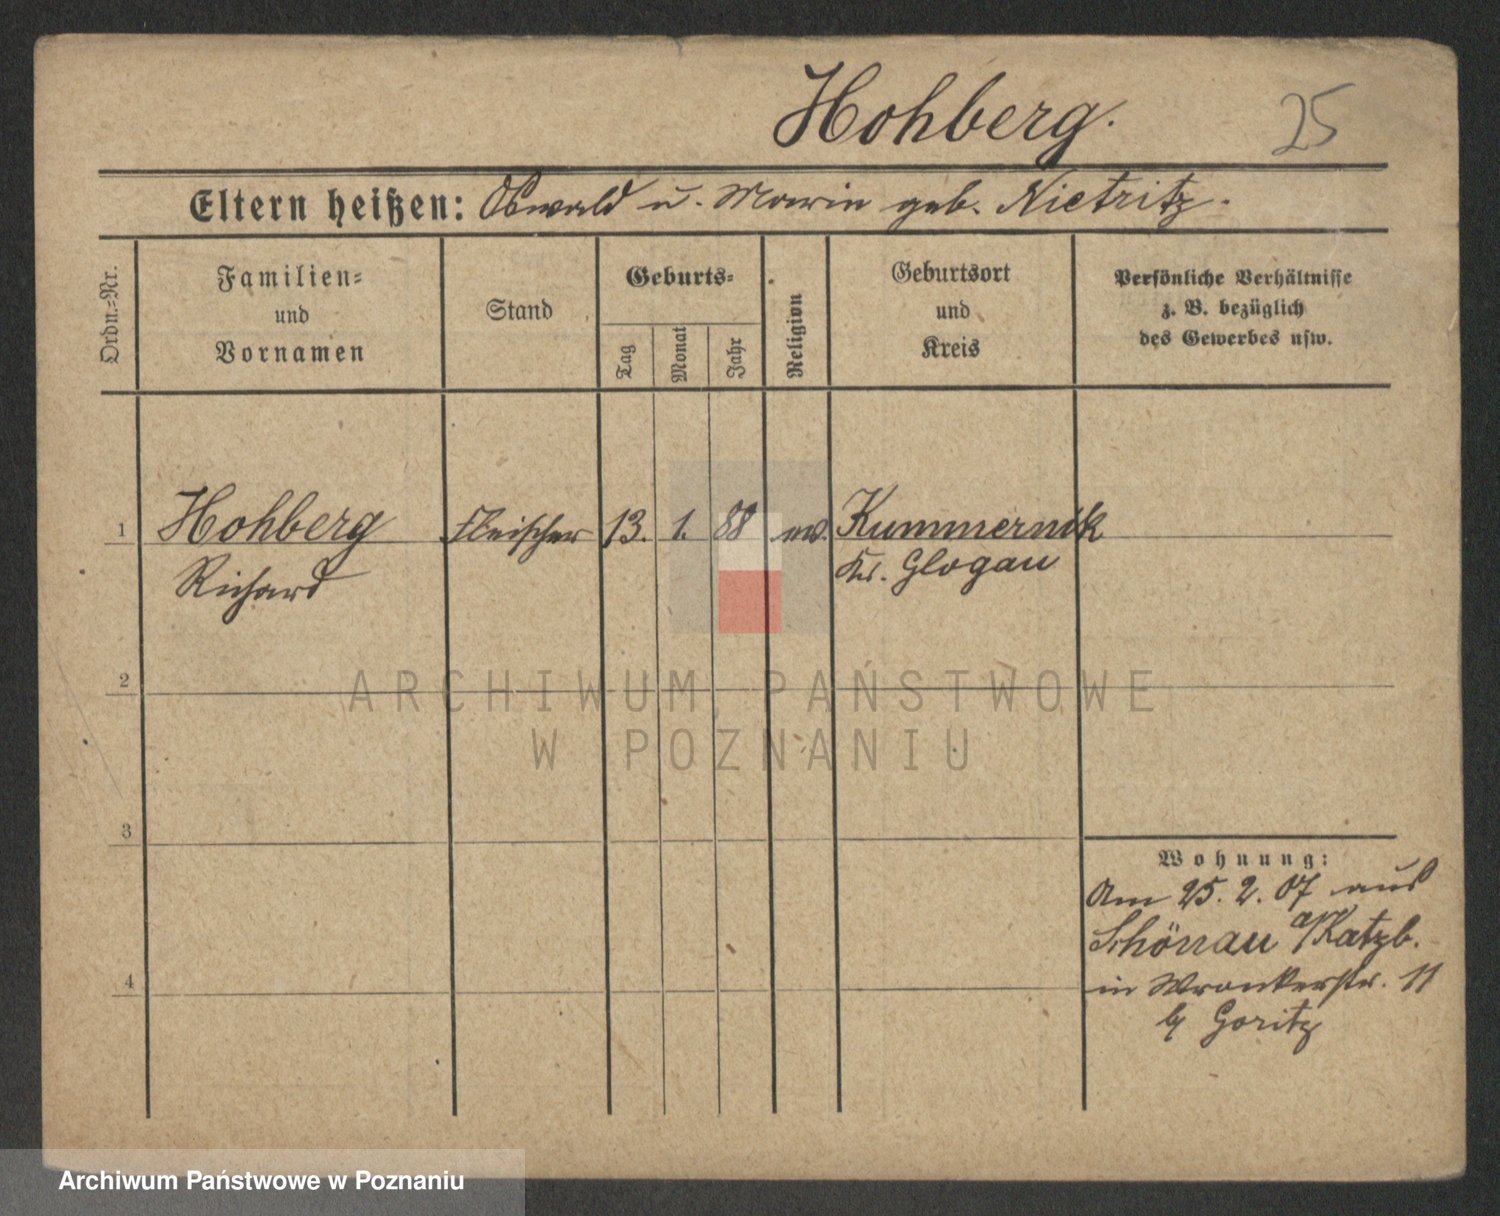 Hohberg.
25
Eltern heißen: Oswald u. Marie geb. Nietritz.
Ordn.-Nr.
Familien-
und
Vornamen
Stand
Geburts-
Tag
Monat
Jahr
Religion
Geburtsort
und
Kreis
Persönliche Verhältnisse
z. B. bezüglich
des Gewerbes usw.
1 Hohberg Fleischer 13. 1. 88 ev. Kummernik
Richard Kr. Glogau
2
ARCHIWUM PAŃSTWOWE
W POZNANIU
3
Wohnung:
Am 25. 2. 07 aus
Schönau a/Katzb.
4
in Wronkerstr. 11
b/ Goritz
Archiwum Państwowe w Poznaniu